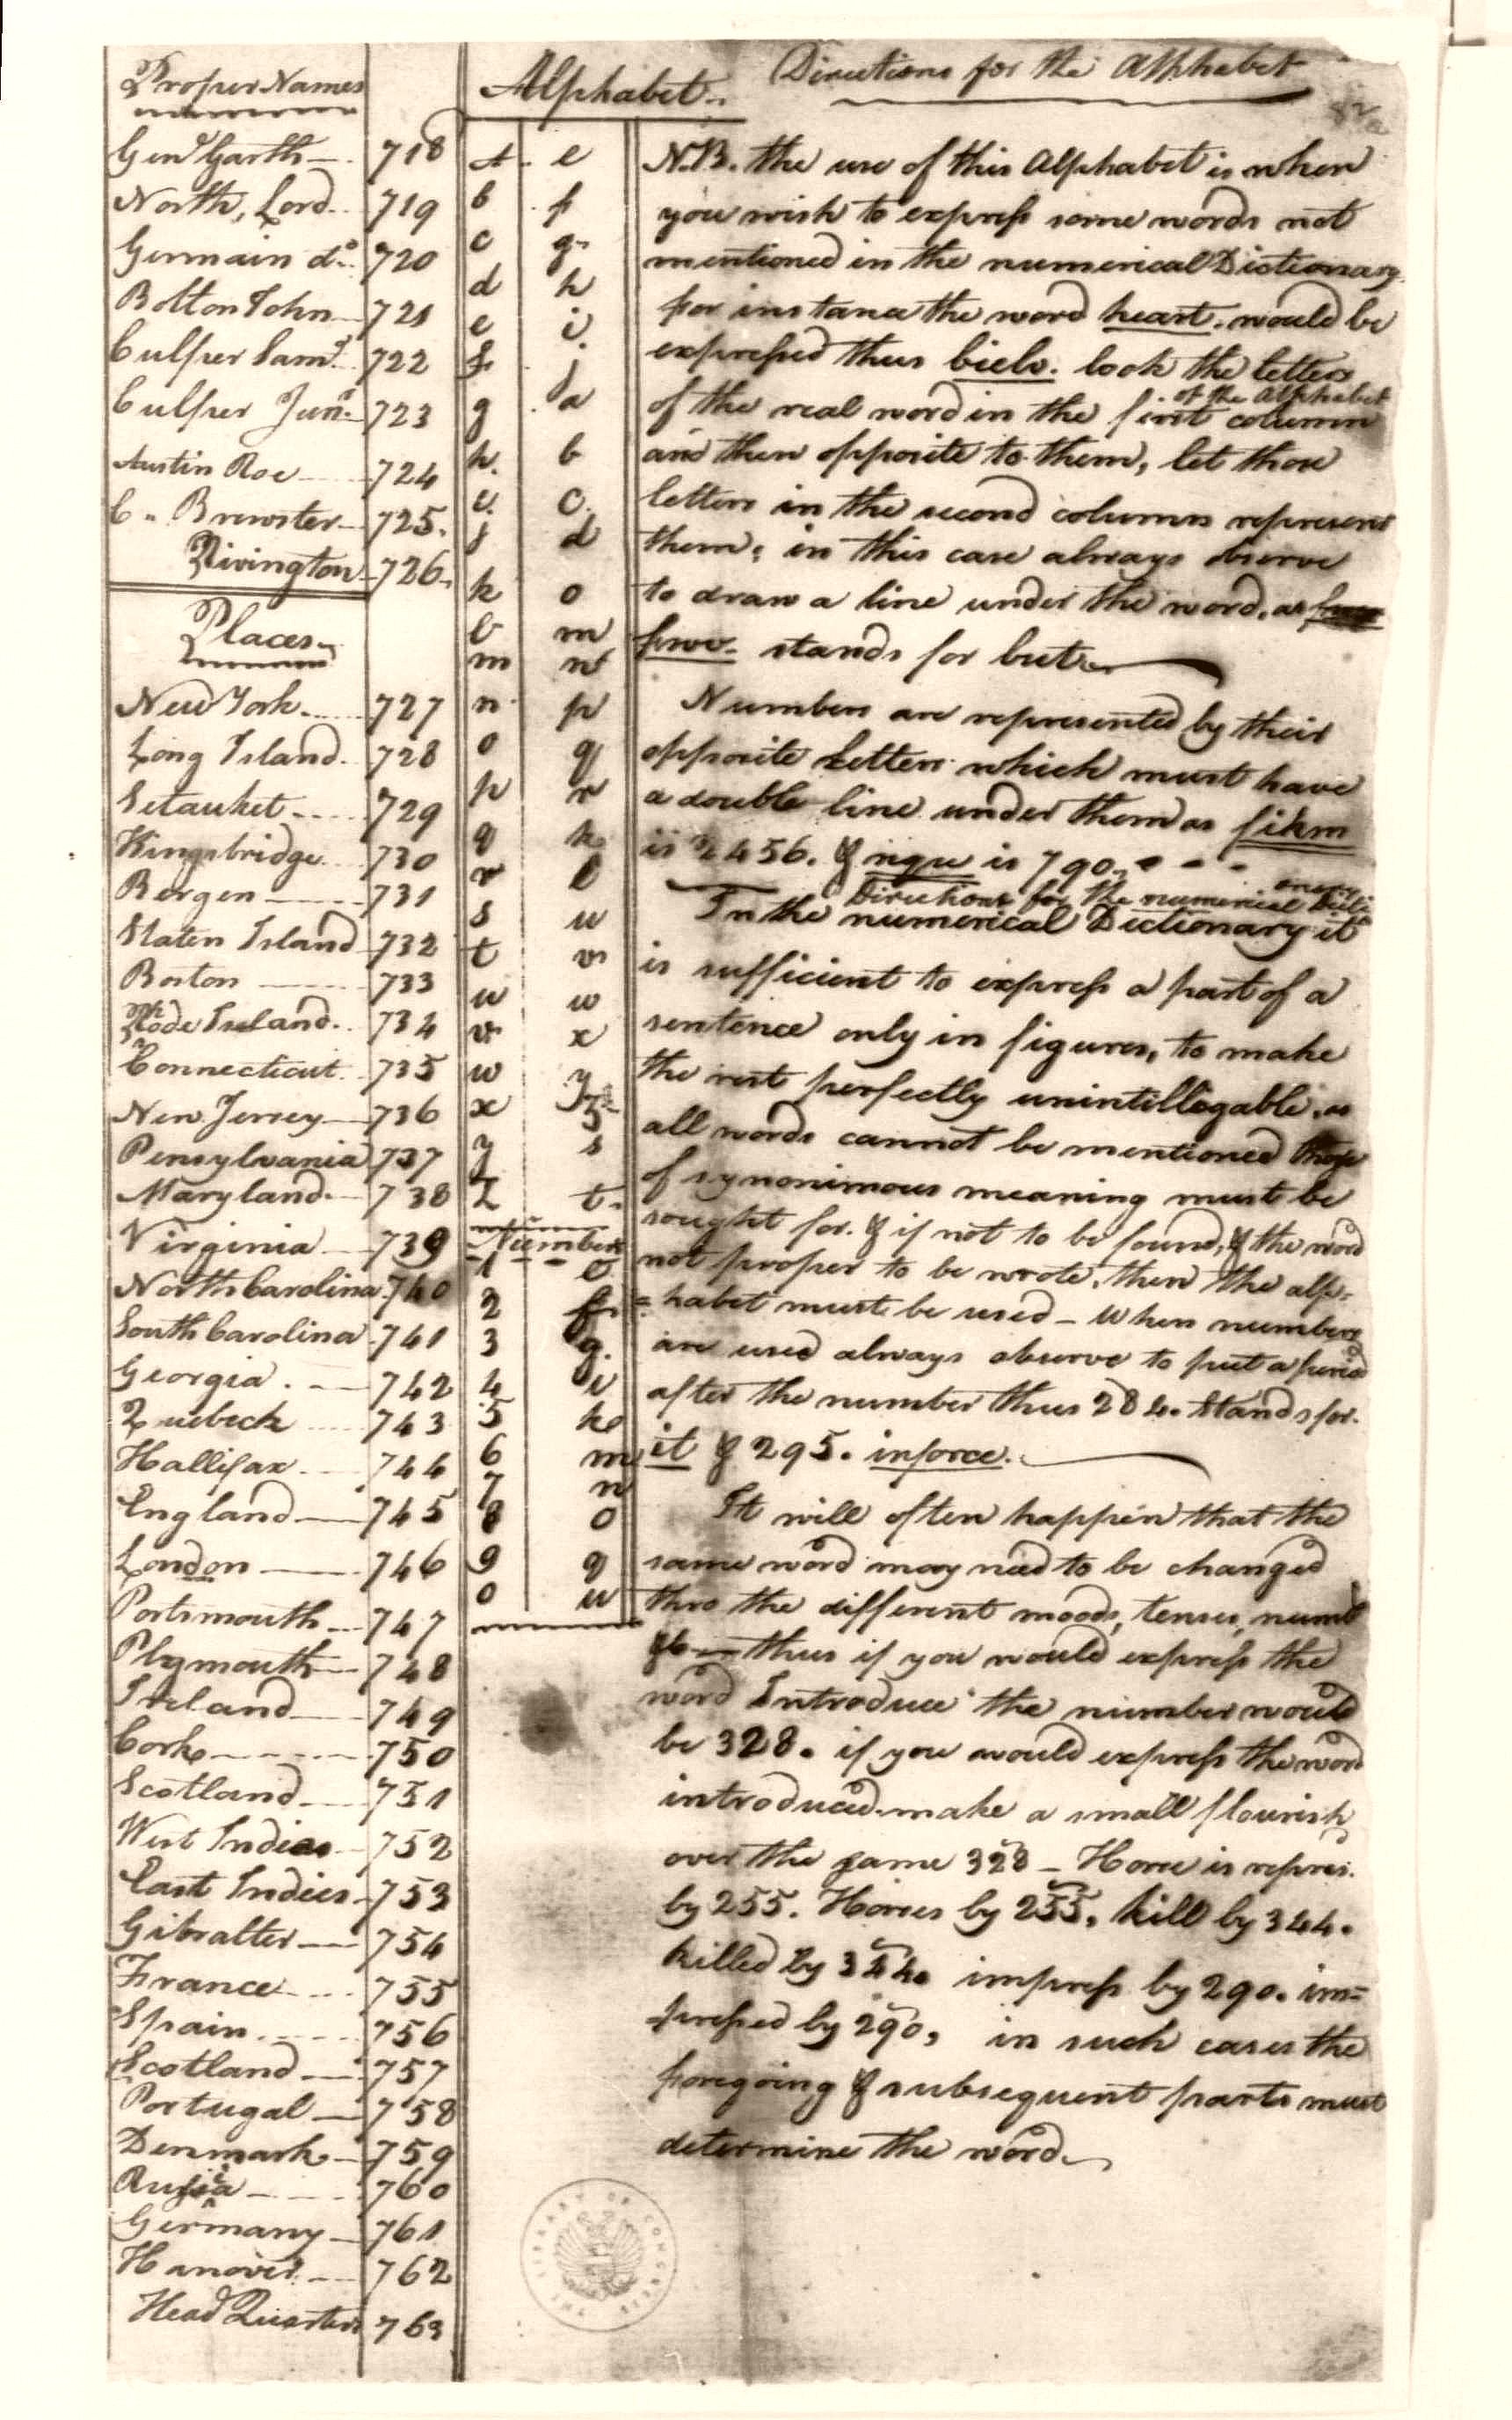 Proper Names
Genl Garth 718
North, Lord 719
Germain do 720
Bolton John 721
Culper Saml 722
Culper Junr 723
Austin Roe 724
C. Brewster 725.
Rivington 726.
Places
New York 727
Long Island 728
Setauket 729
Kingsbridge 730
Bergen 731
Staten Island 732
Boston 733
Rhode Island 734
Connecticut 735
New Jersey 736
Pensylvania 737
Maryland 738
Virginia 739
North Carolina 740
South Carolina 741
Georgia 742
Quebeck 743
Hallifax 744
England 745
London 746
Portsmouth 747
Plymouth 748
Ireland 749
Corke 750
Scotland 751
West Indies 752
East Indies 753
Gibralter 754
France 755
Spain 756
Scotland 757
Portugal 758
Denmark 759
Russia 760
Germany 761
Hanover 762
Head Quarters 763
Alphabet
a e
b f
c g
d h
e i
f j
g a
h b
i c
j d
k o
l m
m n
n p
o q
p r
q k
r l
s u
t v
u w
v x
w y
x z
y s
z t
Numbers
1 e
2 f
3 g
4 i
5 k
6 m
7 n
8 o
9 q
0 u
Directions for the Alphabet
N.B. the use of this Alphabet is when
you wish to express some words not
mentioned in the numerical Dictionary
for instance the word heart. would be
expressed thus bielv. look the letters
of the real word in the first column of the Alphabet
and then opposite to them, let those
letters in the second column represent
them; in this case always observe
to draw a line under the word, as
fwv. stands for but
Numbers are represented by their
opposite letters which must have
a double line under them as fikm
is 2456. & nqu is 790.
Directions for the numerical
In the numerical Dictionary it
is sufficient to express a part of a
sentence only in figures, to make
the rest perfectly unintillegable, as
all words cannot be mentioned those
of synonimous meaning must be
sought for. & if not to be found, & the word
not proper to be wrote, then the alp=
=habet must be used – When numbers
are used always observe to put a period
after the number thus 284. stands for.
it & 295. inforce.
It will often happen that the
same word may need to be changed
thro the different moods, tenses, numb
&c — thus if you would express the
word Introduce the number would
be 328. if you would express the word
introduced make a small flourish
over the same 328 – Horse is repres.
by 255. Horses by 255, kill by 344.
killed by 344. impress by 290. im=
pressed by 290, in such cases the
foregoing & subsequent parts must
determine the word
THE LIBRARY OF CONGRESS